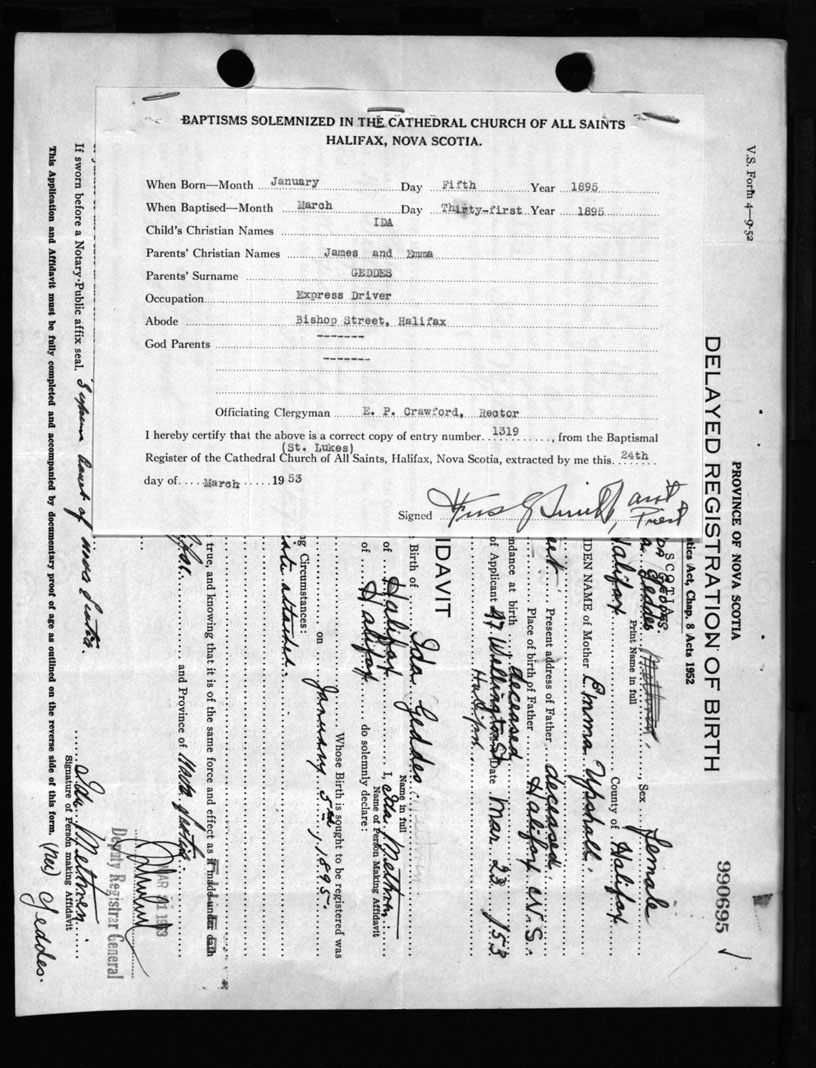 BAPTISMS SOLEMNIZED IN THE CATHEDRAL CHURCH OF ALL SAINTS
HALIFAX, NOVA SCOTIA.
When Born—Month January Day Fifth Year 1895
When Baptised—Month March Day Thirty-first Year 1895
Child's Christian Names IDA
Parents' Christian Names James and Emma
Parents' Surname GEDDES
Occupation Express Driver
Abode Bishop Street, Halifax
God Parents -------
-------
Officiating Clergyman E. P. Crawford, Rector
I hereby certify that the above is a correct copy of entry number 1319, from the Baptismal
(St. Lukes)
Register of the Cathedral Church of All Saints, Halifax, Nova Scotia, extracted by me this 24th
day of March 1953
Signed
Priest
V.S. Form 4—9-52
PROVINCE OF NOVA SCOTIA
DELAYED REGISTRATION OF BIRTH
990695
ties Act, Chap. 8 Acts 1952
Geddes
Print Name in full
Sex female
Halifax County of Halifax
IDEN NAME of Mother Emma Upshall.
Present address of Father deceased
Place of birth of Father Halifax N.S.
ndance at birth deceased
of Applicant 27 Wellington St Date Mar 23 / 53
Halifax.
IDAVIT
Birth of Ida Geddes
Name in full
of Halifax I, Ida Methven
Name of Person Making Affidavit
of Halifax do solemnly declare:
Whose Birth is sought to be registered was
on January 5th, 1895.
ng Circumstances:
attached.
true, and knowing that it is of the same force and effect as if made under oath
and Province of Nova Scotia
Deputy Registrar General
Ida Methven
Signature of Person making Affidavit
(nee) Geddes.
If sworn before a Notary-Public affix seal. Supreme Court of Nova Scotia.
This Application and Affidavit must be fully completed and accompanied by documentary proof of age as outlined on the reverse side of this form.